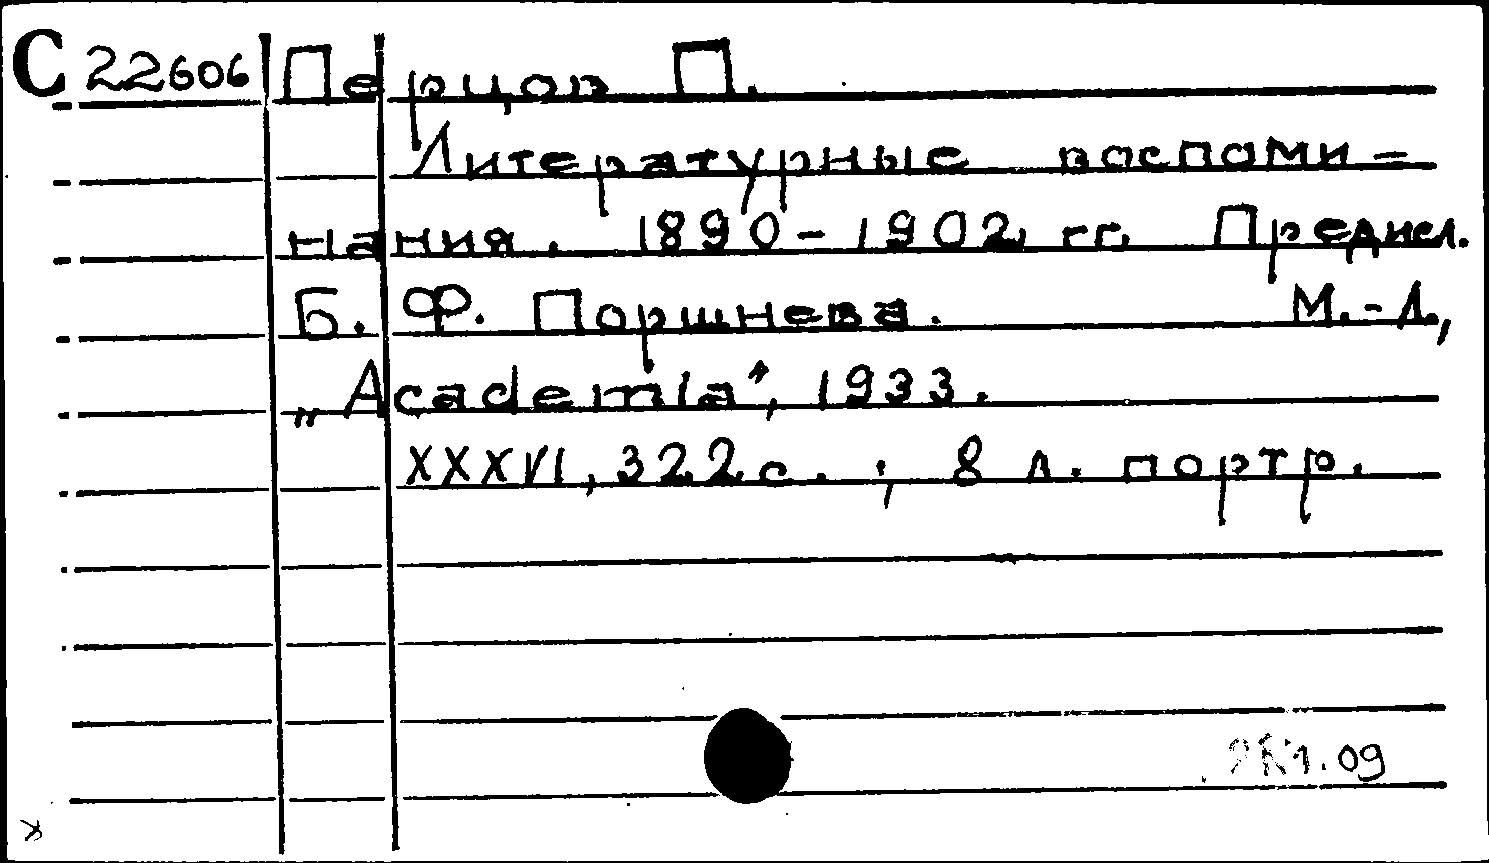 С 22606 Перцов П.
Литературные воспоми-
нания. 1890-1902 гг. Предисл.
Б. Ф. Поршнева. М.-Л.,
„Academia", 1933.
XXXVI, 322 с. ; 8 л. портр.